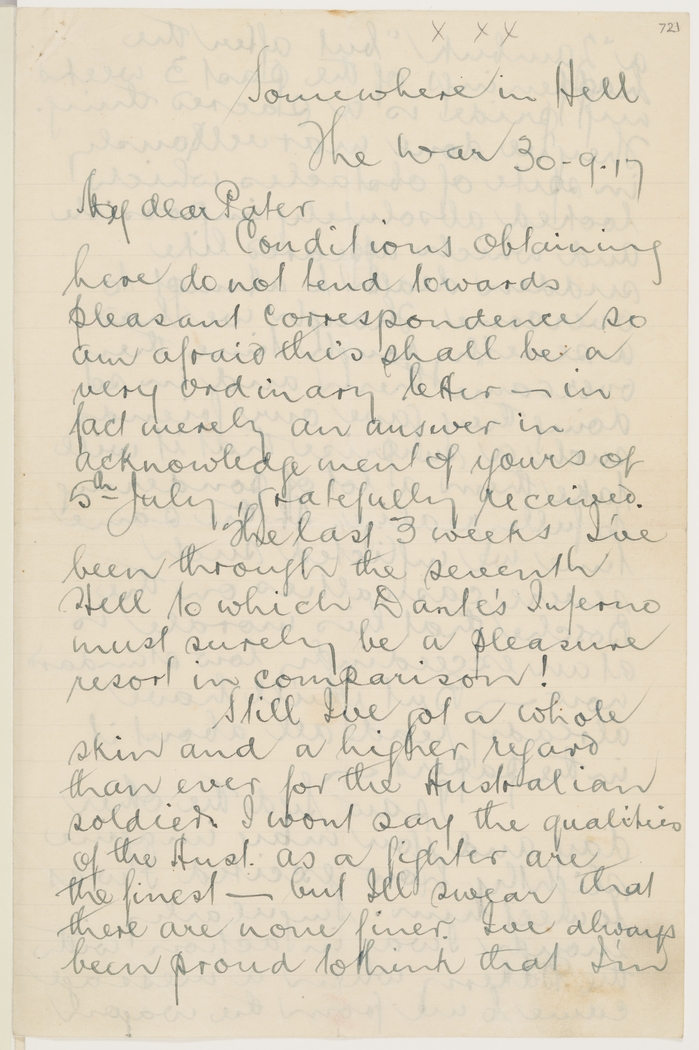 x x x
721
Somewhere in Hell
The War 30-9-17
My dear Pater
Conditions obtaining
here do not tend towards
pleasant correspondence so
am afraid this shall be a
very ordinary letter — in
fact merely an answer in
acknowledgement of yours of
5th July, gratefully received.
The last 3 weeks I've
been through the seventh
Hell to which Dante's Inferno
must surely be a pleasure
resort in comparison!
Still I've got a whole
skin and a higher regard
than ever for the Australian
soldier. I wont say the qualities
of the Aust. as a fighter are
the finest — but I'll swear that
there are none finer. I've always
been proud to think that I'm